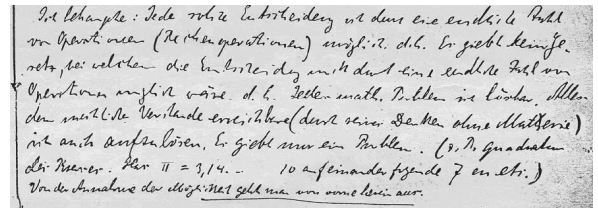 Ich behaupte: Jede solche Entscheidung ist durch eine endliche Zahl
von Operationen (Rechenoperationen) möglich. d.h. Es giebt kein Ge-
setz, bei welchem die Entscheidung nicht durch eine endliche Zahl von
Operationen möglich wäre. d.h. Jedes math. Problem ist lösbar. Alles
dem menschlichen Verstande erreichbare (durch seine Denken ohne Matherie)
ist auch aufzulösen. Es giebt nur ein Problem. (z.B. quadratur
des Kreises. π = 3,14.. 10 aufeinander folgende 7 en etc.)
Von der Annahme der Möglichkeit geht man von vorne herein aus.